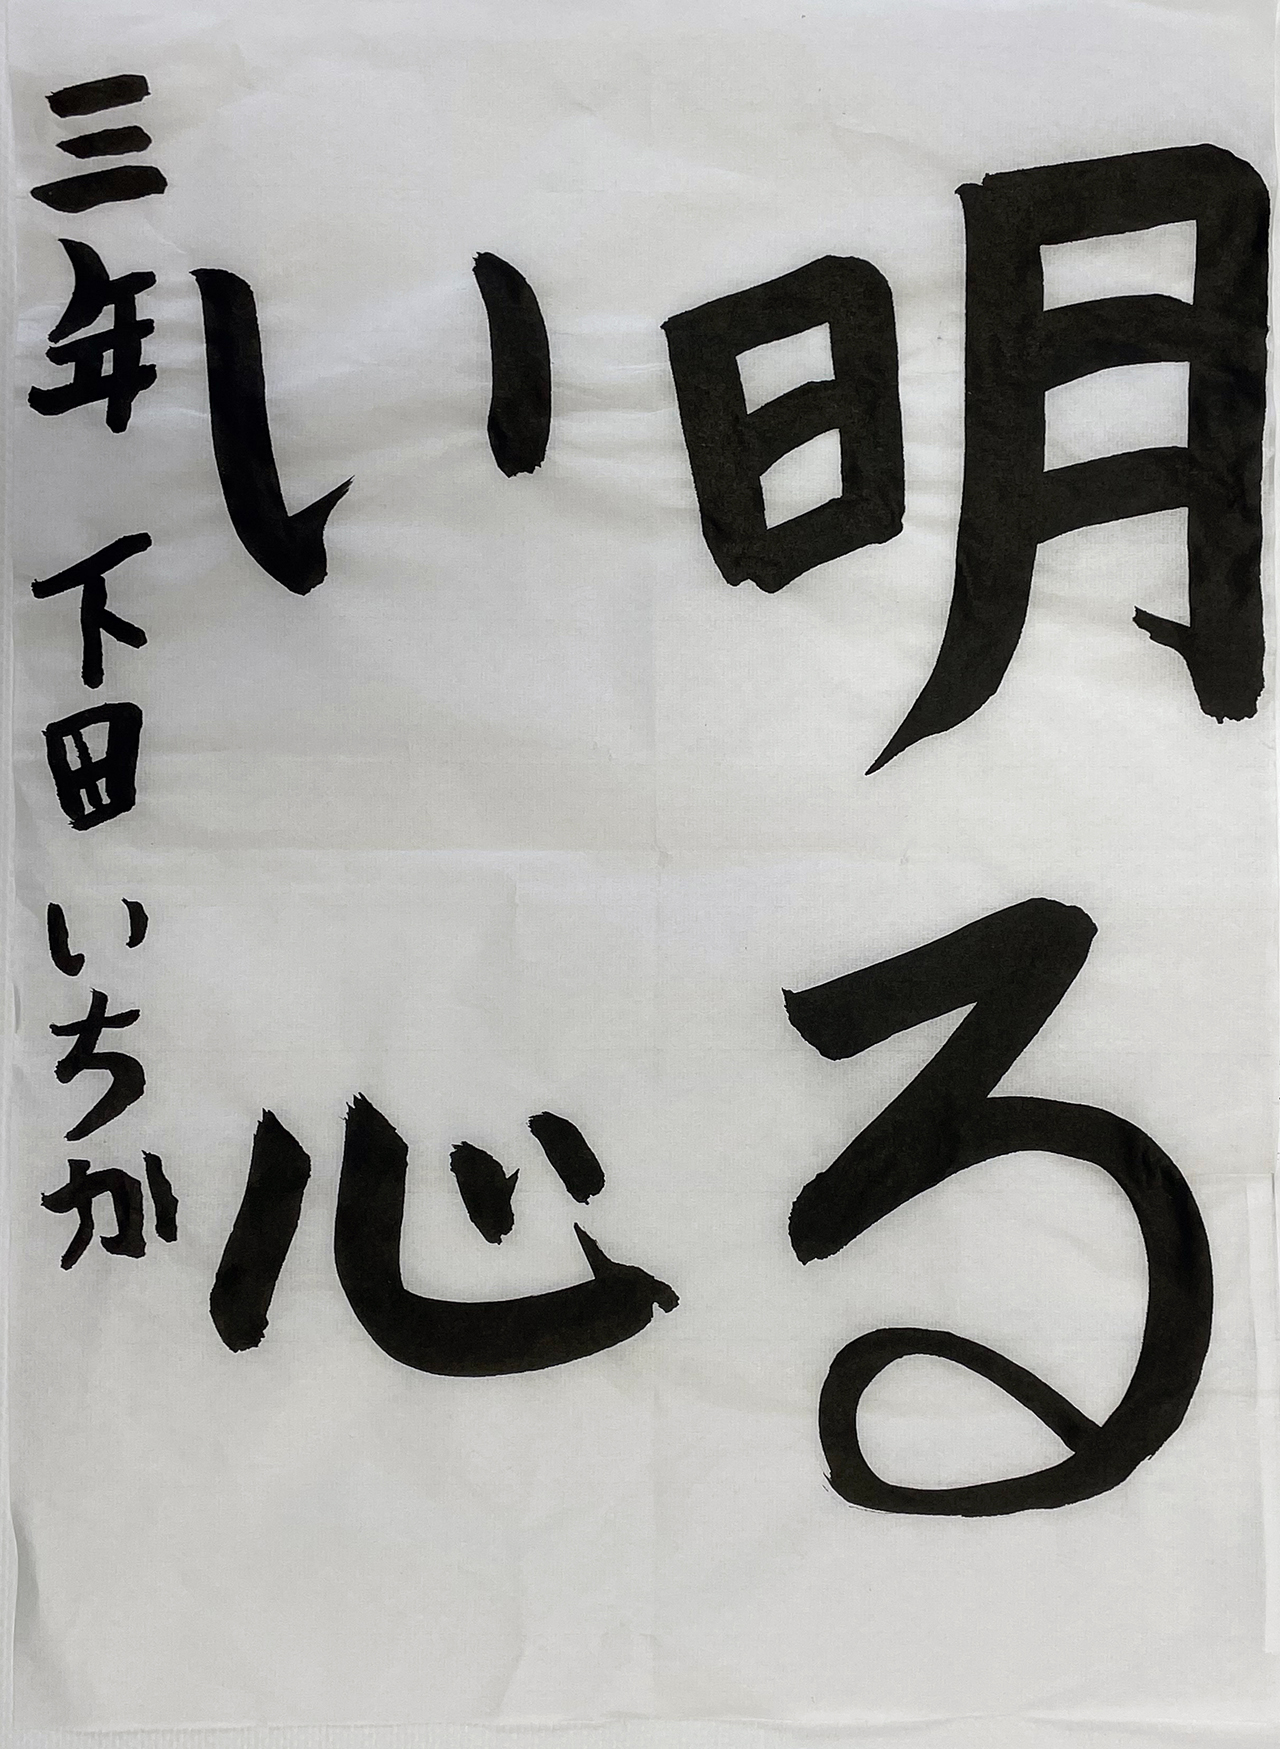 明る
い心
三年 下田 いちか